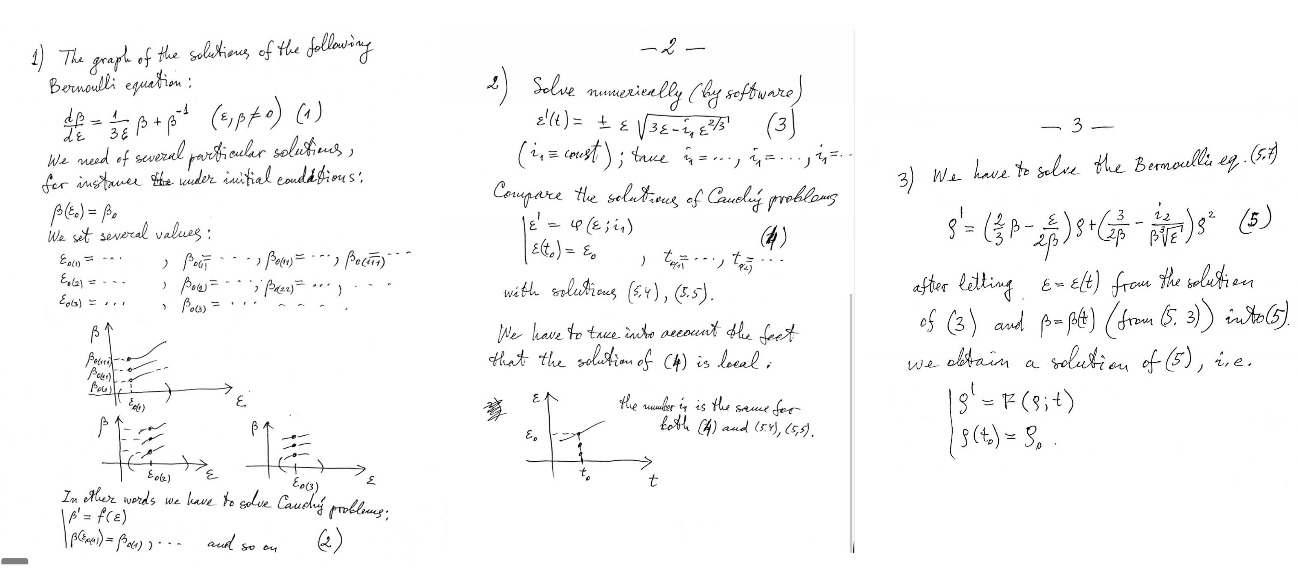 1) The graph of the solutions of the following
Bernoulli equation:
dβ/dε = 1/3ε β + β^-1 (ε, β ≠ 0) (1)
We need of several particular solutions,
for instance the under initial conditions:
β(ε₀) = β₀
We set several values:
ε₀(1) = ... , β₀(1) = ... , β₀(11) = ... , β₀(i+1) = ...
ε₀(2) = ... , β₀(2) = ... , β₀(22) = ... , ...
ε₀(3) = ... , β₀(3) = ...
β
β₀(1)
ε₀(1)
ε
β
ε₀(2)
ε
β
ε₀(3)
ε
In other words we have to solve Cauchy problems:
β' = f(ε)
β(ε₀(1)) = β₀(1), ... and so on (2)
– 2 –
2) Solve numerically (by software)
ε'(t) = ± ε √(3ε - i₁ ε^2/3) (3)
(i₁ ≡ const); take i₁ = ..., i₁ = ..., i₁ = ...
Compare the solutions of Cauchy problems
ε' = φ(ε; i₁)
ε(t₀) = ε₀ , t₀(1) = ..., t₀(2) = ... (4)
with solutions (5.4), (5.5).
We have to take into account the fact
that the solution of (4) is local:
ε
ε₀
t₀
t
the number i₁ is the same for
both (4) and (5.4), (5.5).
– 3 –
3) We have to solve the Bernoulli eq. (5.7)
ρ' = (2/3 β - ε/2β) ρ + (3/2β - i₂/β³√ε) ρ² (5)
after letting ε = ε(t) from the solution
of (3) and β = β(t) (from (5.3)) into (5).
we obtain a solution of (5), i.e.
ρ' = F(ρ; t)
ρ(t₀) = ρ₀.